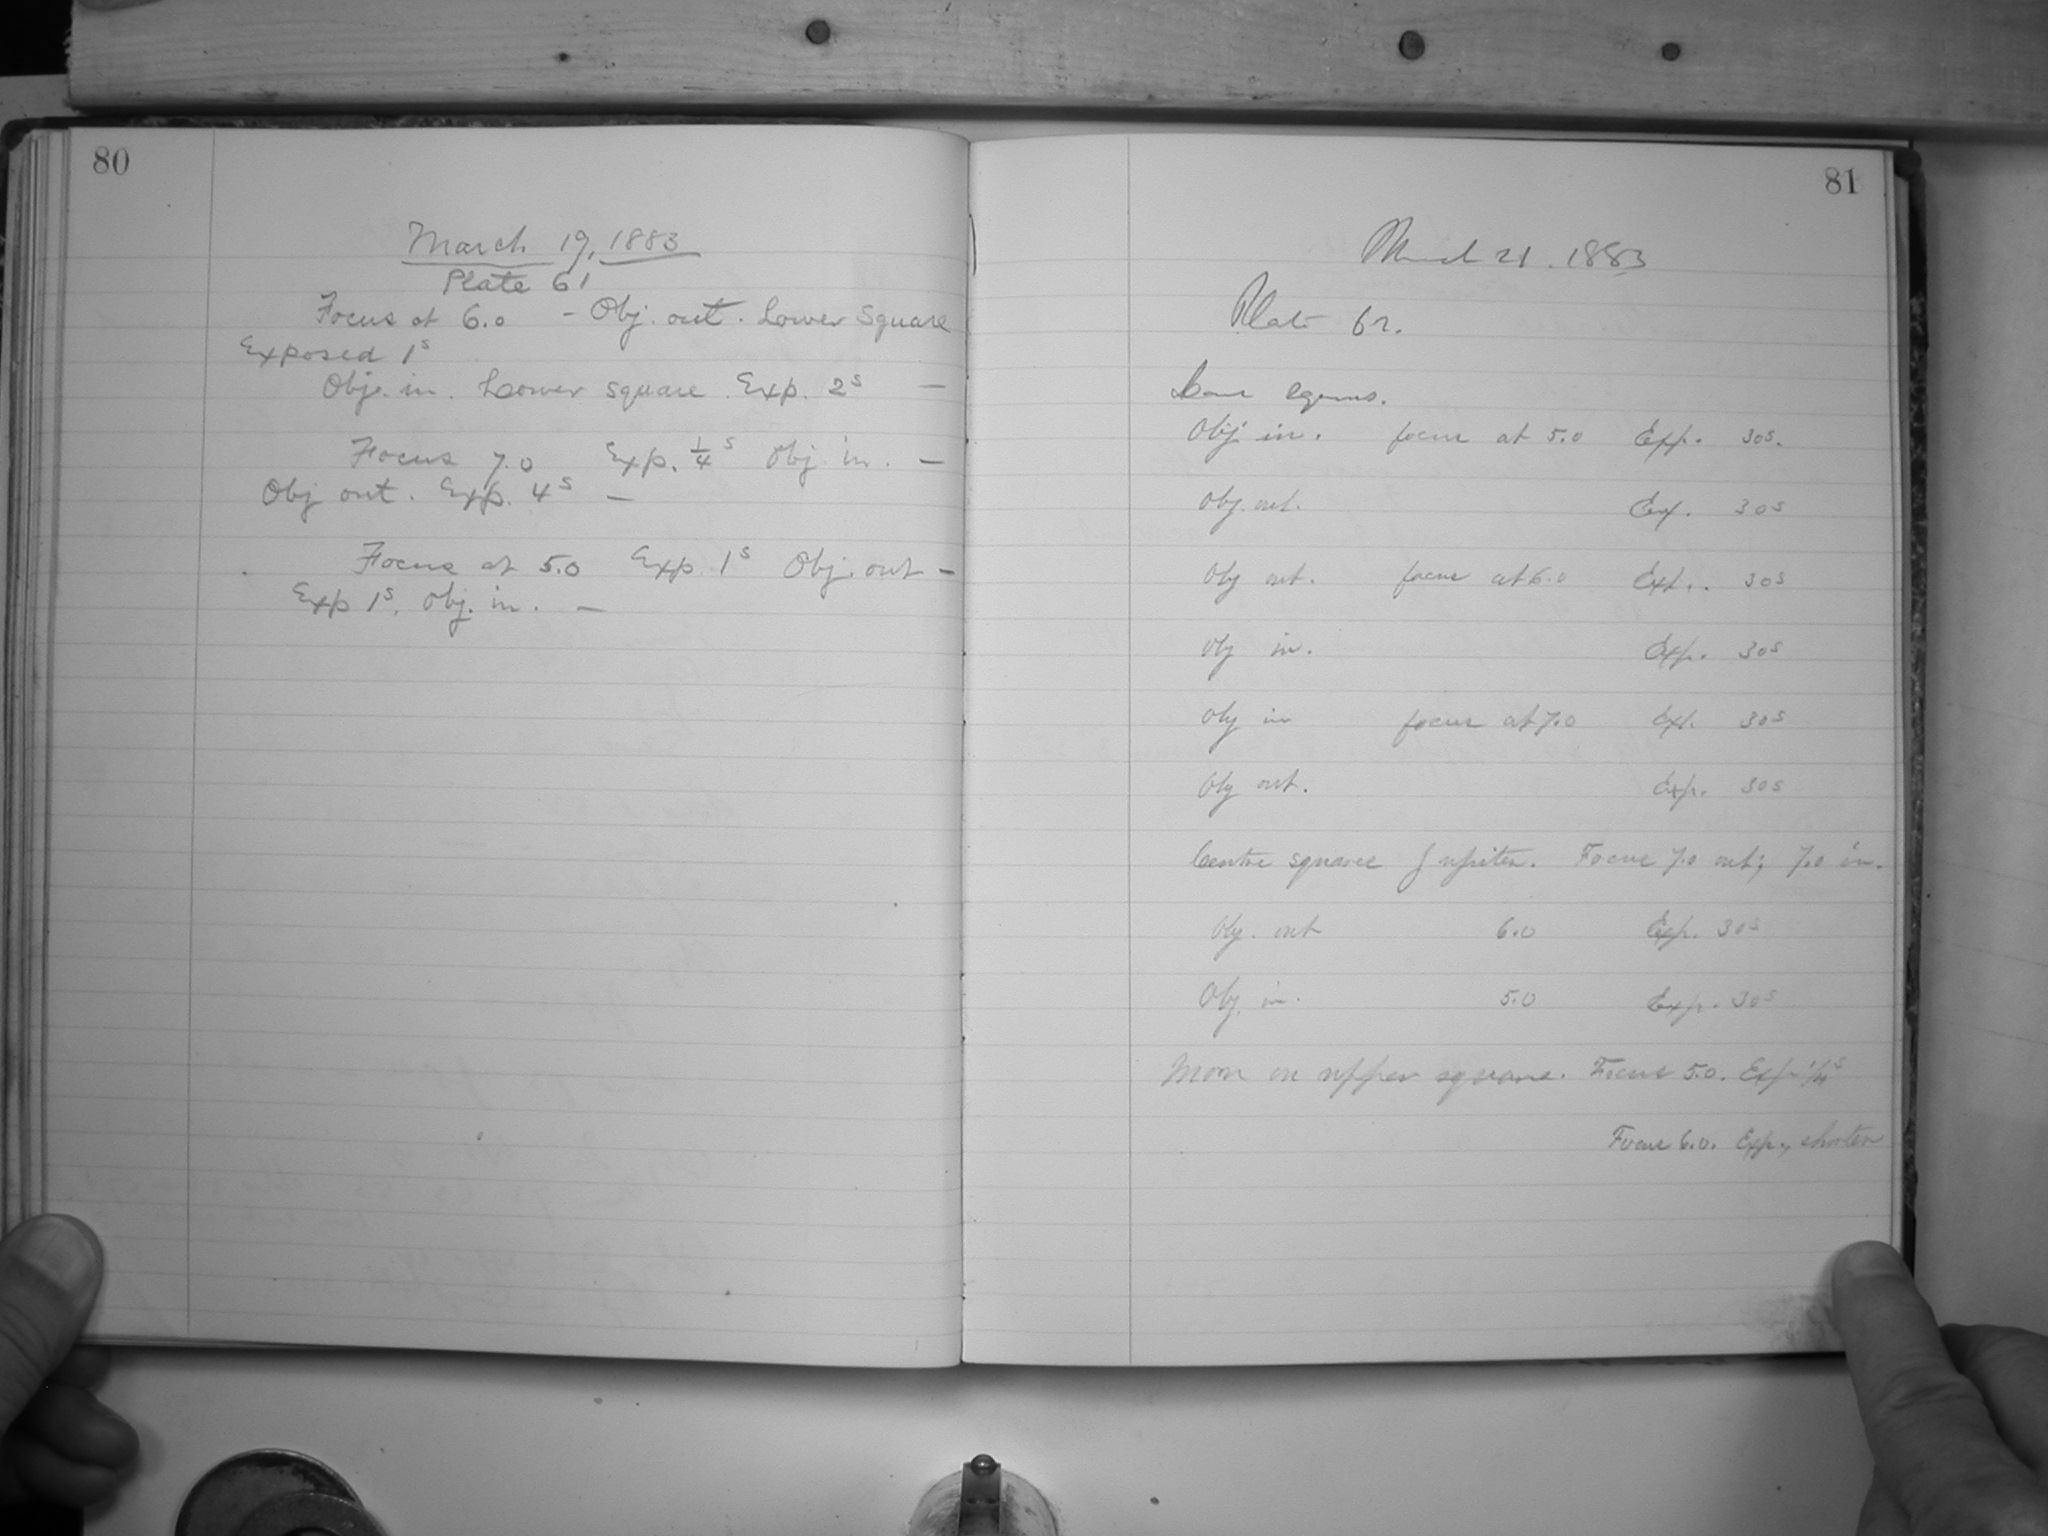 80
March 19, 1883
Plate 61
Focus at 6.0 - Obj. out. Lower Square
Exposed 1s
Obj. in. Lower square. Exp. 2s —
Focus 7.0 Exp. 1/4 s Obj. in. —
Obj out. Exp. 4s —
Focus at 5.0 Exp. 1s Obj. out —
Exp 1s. Obj. in. —
81
March 21. 1883
Plate 62.
Obj in. focus at 5.0 Exp. 30s.
Obj. out. Exp. 30s
Obj out. focus at 6.0 Exp. 30s
Obj in. Exp. 30s
Obj in focus at 7.0 Exp. 30s
Obj out. Exp. 30s
Centre square Jupiter. Focus 7.0 out; 7.0 in.
Obj. out 6.0 Exp. 30s
Obj. in. 5.0 Exp. 30s
Moon on upper square. Focus 5.0. Exp. 1/4s
Focus 6.0. Exp., shorter